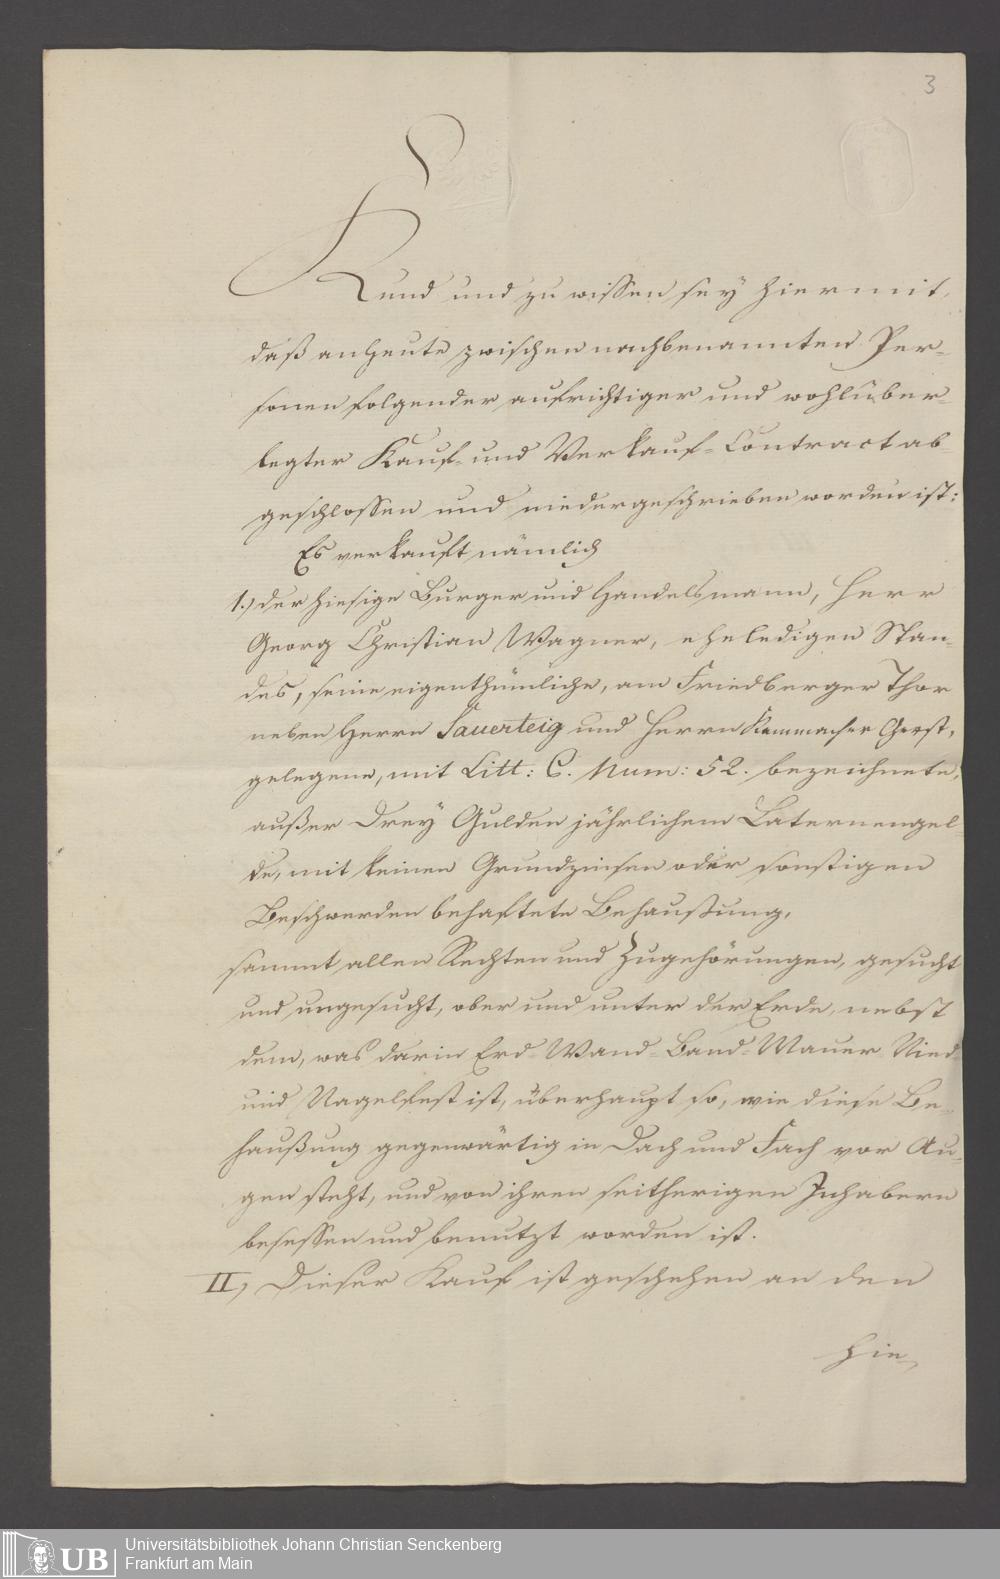 3
Kund und zu wissen sey hiermit,
daß anheute zwischen nachbenannten Per-
sonen folgender aufrichtiger und wohlüber-
legter Kauf- und Verkauf-Contract ab-
geschlossen und niedergeschrieben worden ist:
Es verkauft nämlich
1.) der hiesige Burger und Handelsmann, Herr
Georg Christian Wagner, eheledigen Stan-
des, seine eigenthümliche, am Friedberger Thor
neben Herrn Sauerteig und Herrn Kammacher Gerst,
gelegene, mit Litt: C. Num: 52. bezeichnete,
außer Drey Gulden jährlichem Laternengel-
de, mit keinen Grundzinsen oder sonstigen
Beschwerden behaftete Behaußung,
sammt allen Rechten und Zugehörungen, gesucht
und ungesucht, ober und unter der Erde, nebst
dem, was darin Erd- Wand- Band- Mauer- Nied-
und Nagelfest ist, überhaupt so, wie diese Be-
haußung gegenwärtig in Dach und Fach vor Au-
gen steht, und von ihren seitherigen Inhabern
besessen und benutzt worden ist.
II, Dieser Kauf ist geschehen an den
hie-
UB
Universitätsbibliothek Johann Christian Senckenberg
Frankfurt am Main